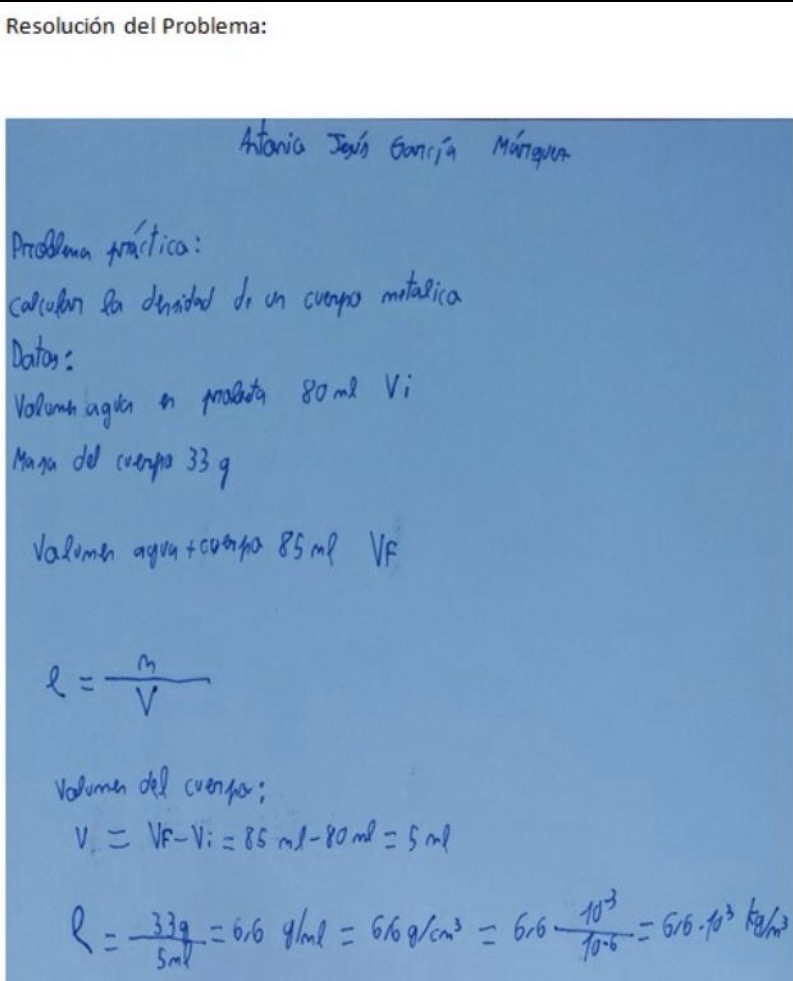 Resolución del Problema:
Antonio Jesús García Márquez
Problema práctico:
Calcular la densidad de un cuerpo metalico
Datos:
Volumen agua en probeta 80 ml Vi
Masa del cuerpo 33 g
Volumen agua + cuerpo 85 ml VF
ρ = m / V
Volumen del cuerpo:
V = VF - Vi = 85 ml - 80 ml = 5 ml
ρ = 33g / 5ml = 6,6 g/ml = 6,6 g/cm³ = 6,6 · 10⁻³ / 10⁻⁶ = 6,6 · 10³ kg/m³